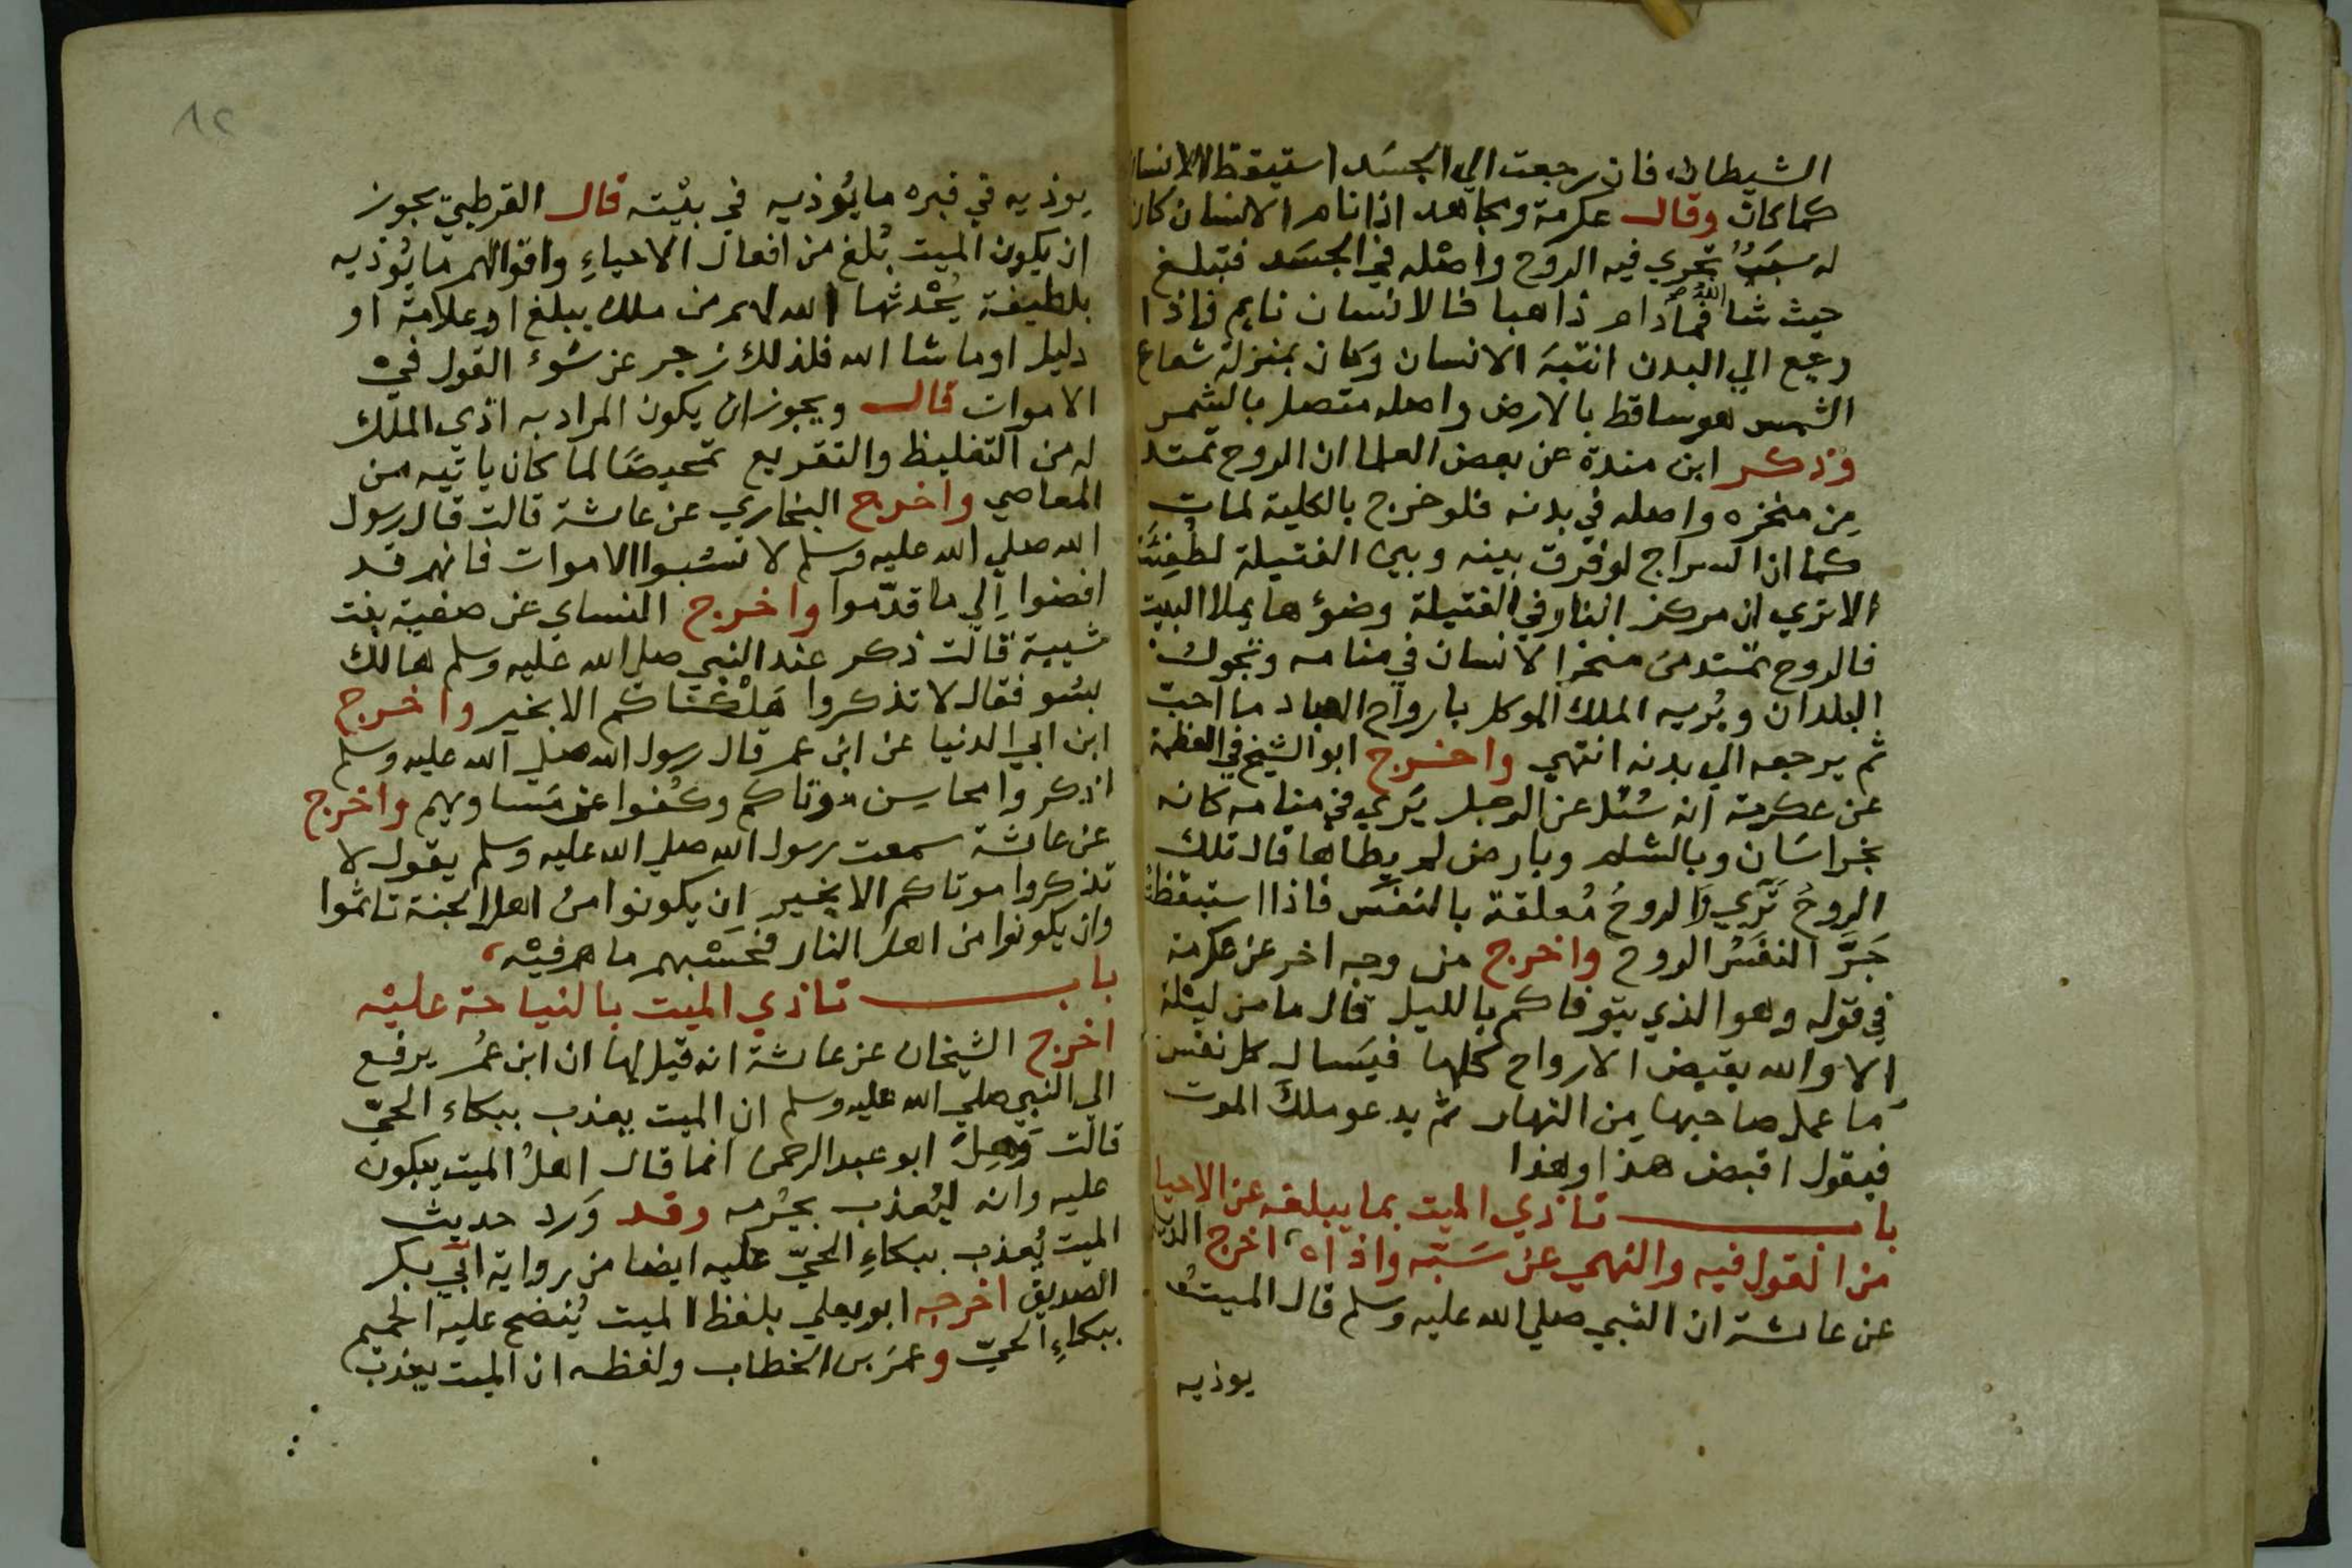 الشيطان فان رجعت الي الجسد استيقظ الانسان
كما كان وقال عكرمة ومجاهد اذا نام الانسان كان
له سبب تجري فيه الروح واصله في الجسد فتبلغ
حيث شا الله فما دام ذاهبا فالانسان نايم فاذا
رجع الي البدن انتبه الانسان وكان بمنزلة شعاع
الشمس هو ساقط بالارض واصله متصل بالشمس
وذكر ابن مندة عن بعض العلما ان الروح تمتد
من منخره واصله في بدنه فلو خرج بالكلية لمات
كما ان السراج لو فرق بينه وبين الفتيلة لطفئت
الا تري ان مركز النار في الفتيلة وضؤها يملا البيت
فالروح تمتد من منخر الانسان في منامه وتجول
البلدان ويريه الملك الموكل بارواح العباد ما احب
ثم يرجعه الي بدنه انتهي واخرج ابو الشيخ في العظمة
عن عكرمة انه سئل عن الرجل يري في منامه كانه
بخراسان وبالشام وبارض لم يطاها قال تلك
الروح تري والروح معلقة بالنفس فاذا استيقظ
جر النفس الروح واخرج من وجه اخر عن عكرمة
في قوله وهو الذي يتوفاكم بالليل قال ما من ليلة
الا والله يقبض الارواح كلها فيسال كل نفس
ما عمل صاحبها من النهار ثم يدعو ملك الموت
فيقول اقبض هذا وهذا
باب تاذي الميت بما يبلغه عن الاحيا
من القول فيه والنهي عن سبه واذاه اخرج
عن عائشة ان النبي صلي الله عليه وسلم قال الميت
يوذيه
١٢
يوذيه في قبره ما يؤذيه في بيته قال القرطبي يجوز
ان يكون الميت بلغ من افعال الاحياء واقوالهم ما يؤذيه
بلطيفة يحدثها الله لهم من ملك يبلغ او علامة او
دليل او ما شا الله فلذلك زجر عن سوء القول في
الاموات قال ويجوز ان يكون المراد به اذي الملك
له من التغليظ والتقريع تمحيصا لما كان ياتيه من
المعاصي واخرج البخاري عن عائشة قالت قال رسول
الله صلي الله عليه وسلم لا تسبوا الاموات فانهم قد
افضوا الي ما قدموا واخرج النساي عن صفية بنت
شيبة قالت ذكر عند النبي صلي الله عليه وسلم هالك
بسو فقال لا تذكروا هلكاكم الا بخير واخرج
ابن ابي الدنيا عن ابن عمر قال رسول الله صلي الله عليه وسلم
اذكروا محاسن موتاكم وكفوا عن مساويهم واخرج
عن عائشة سمعت رسول الله صلي الله عليه وسلم يقول لا
تذكروا موتاكم الا بخير ان يكونوا من اهل الجنة تاثموا
وان يكونوا من اهل النار فحسبهم ما هم فيه
باب تاذي الميت بالنياحة عليه
اخرج الشيخان عن عائشة انه قيل لها ان ابن عمر يرفع
الي النبي صلي الله عليه وسلم ان الميت يعذب ببكاء الحي
قالت وهل ابو عبد الرحمن انما قال اهل الميت يبكون
عليه وانه ليعذب بجرمه وقد ورد حديث
الميت يعذب ببكاء الحي عليه ايضا من رواية ابي بكر
الصديق اخرجه ابو يعلي بلفظ الميت ينضح عليه الحميم
ببكاء الحي وعمر بن الخطاب ولفظه ان الميت يعذب